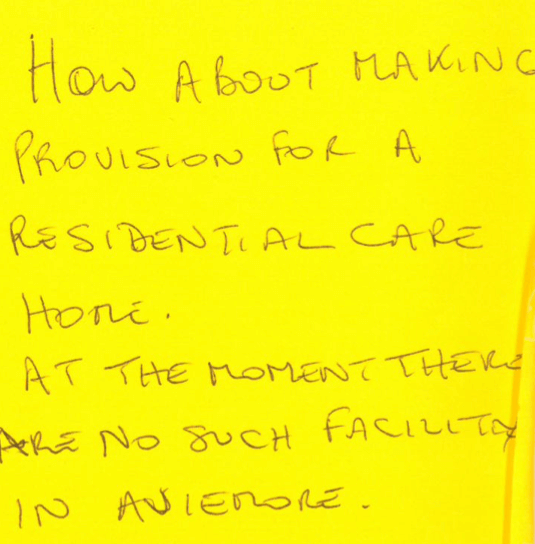 HOW ABOUT MAKING
PROVISION FOR A
RESIDENTIAL CARE
HOME.
AT THE MOMENT THERE
ARE NO SUCH FACILITY
IN AVIEMORE.